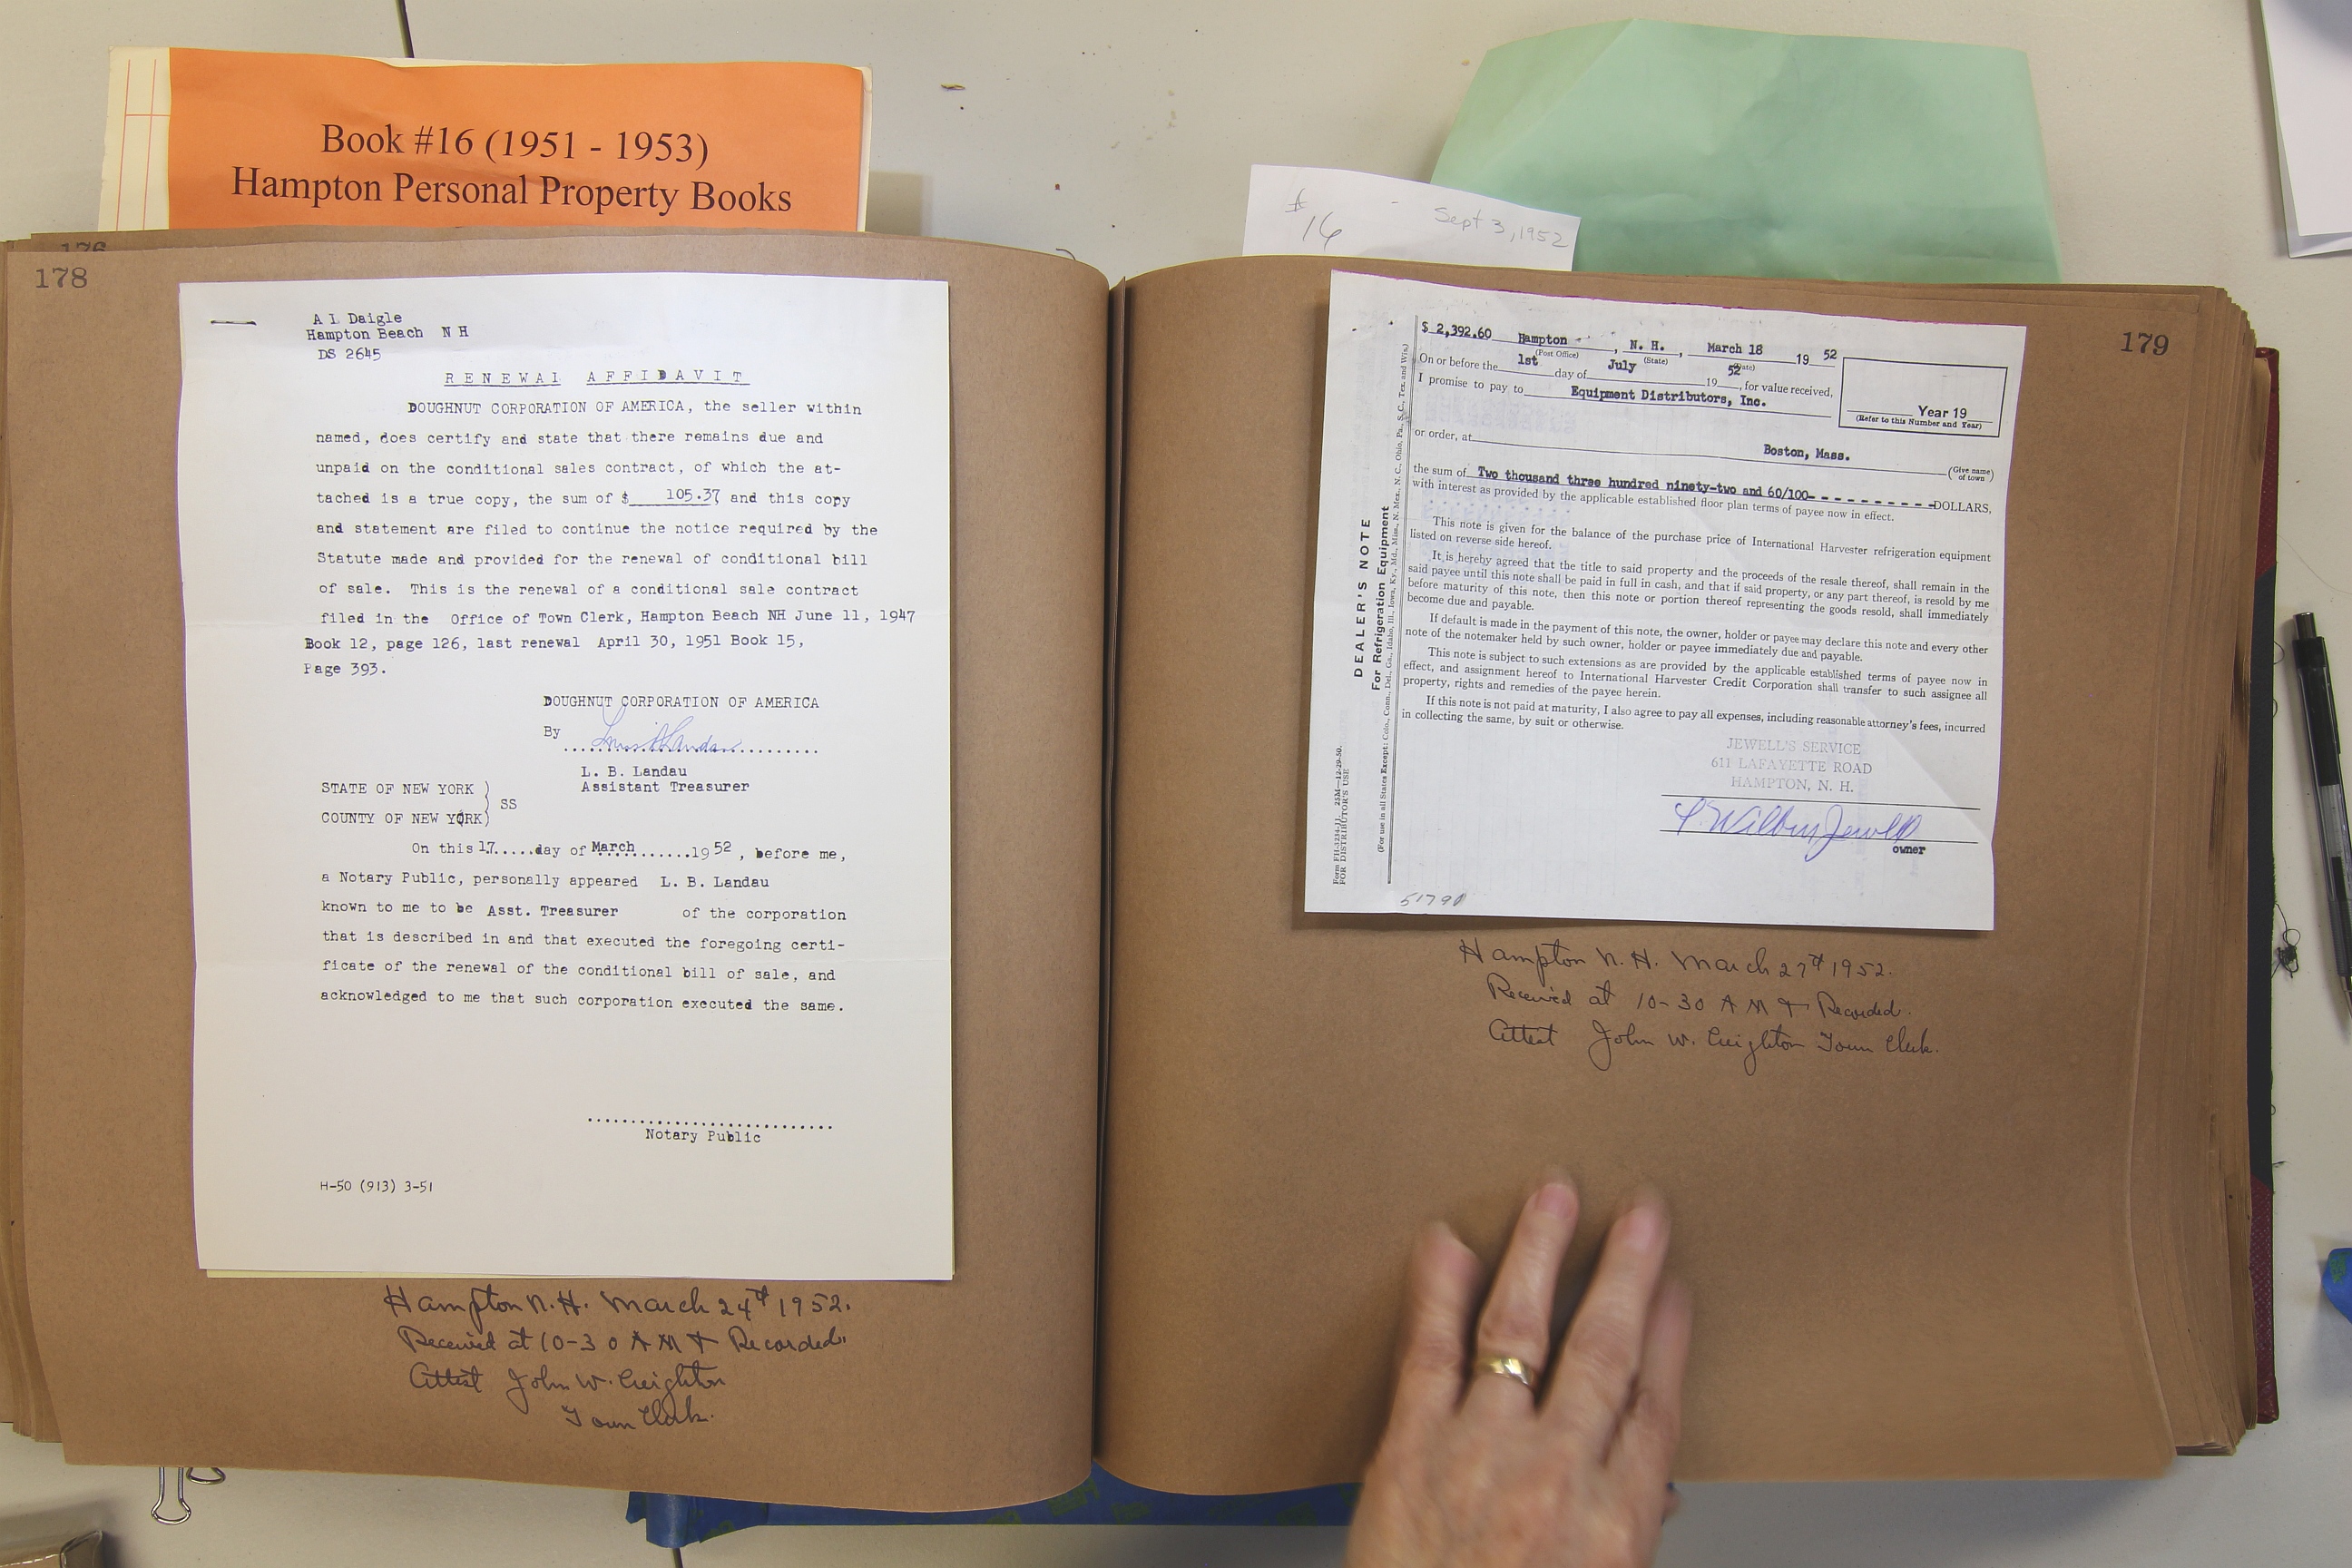 Book #16 (1951 - 1953)
Hampton Personal Property Books
176
178
A L Daigle
Hampton Beach N H
DS 2645
RENEWAL AFFIDAVIT
DOUGHNUT CORPORATION OF AMERICA, the seller within
named, does certify and state that there remains due and
unpaid on the conditional sales contract, of which the at-
tached is a true copy, the sum of $ 105.37 and this copy
and statement are filed to continue the notice required by the
Statute made and provided for the renewal of conditional bill
of sale. This is the renewal of a conditional sale contract
filed in the Office of Town Clerk, Hampton Beach NH June 11, 1947
Book 12, page 126, last renewal April 30, 1951 Book 15,
Page 393.
DOUGHNUT CORPORATION OF AMERICA
By
L. B. Landau
Assistant Treasurer
STATE OF NEW YORK )
) SS
COUNTY OF NEW YORK)
On this 17.....day of March..........1952, before me,
a Notary Public, personally appeared L. B. Landau
known to me to be Asst. Treasurer of the corporation
that is described in and that executed the foregoing certi-
ficate of the renewal of the conditional bill of sale, and
acknowledged to me that such corporation executed the same.
Notary Public
H-50 (913) 3-51
Hampton N.H. March 24th 1952.
Received at 10-30 A M & Recorded.
Attest John W. Creighton
Town Clerk.
# 16 - Sept 3, 1952
179
$ 2,392.60 Hampton, N. H., March 18 1952
(Post Office) (State) (Date)
On or before the 1st day of July 1952, for value received,
I promise to pay to Equipment Distributors, Inc.
Year 19
(Refer to this Number and Year)
or order, at Boston, Mass. (Give name of town)
the sum of Two thousand three hundred ninety-two and 60/100- - - - - - - - - - DOLLARS,
with interest as provided by the applicable established floor plan terms of payee now in effect.
This note is given for the balance of the purchase price of International Harvester refrigeration equipment
listed on reverse side hereof.
It is hereby agreed that the title to said property and the proceeds of the resale thereof, shall remain in the
said payee until this note shall be paid in full in cash, and that if said property, or any part thereof, is resold by me
before maturity of this note, then this note or portion thereof representing the goods resold, shall immediately
become due and payable.
If default is made in the payment of this note, the owner, holder or payee may declare this note and every other
note of the notemaker held by such owner, holder or payee immediately due and payable.
This note is subject to such extensions as are provided by the applicable established terms of payee now in
effect, and assignment hereof to International Harvester Credit Corporation shall transfer to such assignee all
property, rights and remedies of the payee herein.
If this note is not paid at maturity, I also agree to pay all expenses, including reasonable attorney's fees, incurred
in collecting the same, by suit or otherwise.
JEWELL'S SERVICE
611 LAFAYETTE ROAD
HAMPTON, N. H.
Wilbur Jewell
owner
DEALER'S NOTE
For Refrigeration Equipment
(For use in all States Except: Colo., Conn., Del., Ga., Idaho, Ill., Iowa, Ky., Md., Miss., N. Mex., N. C., Ohio, Pa., S.C., Tex. and Wis.)
25M—12-29-50.
FOR DISTRIBUTOR'S USE
Hampton N.H. March 27th 1952.
Received at 10-30 A M & Recorded.
Attest John W. Creighton Town Clerk.